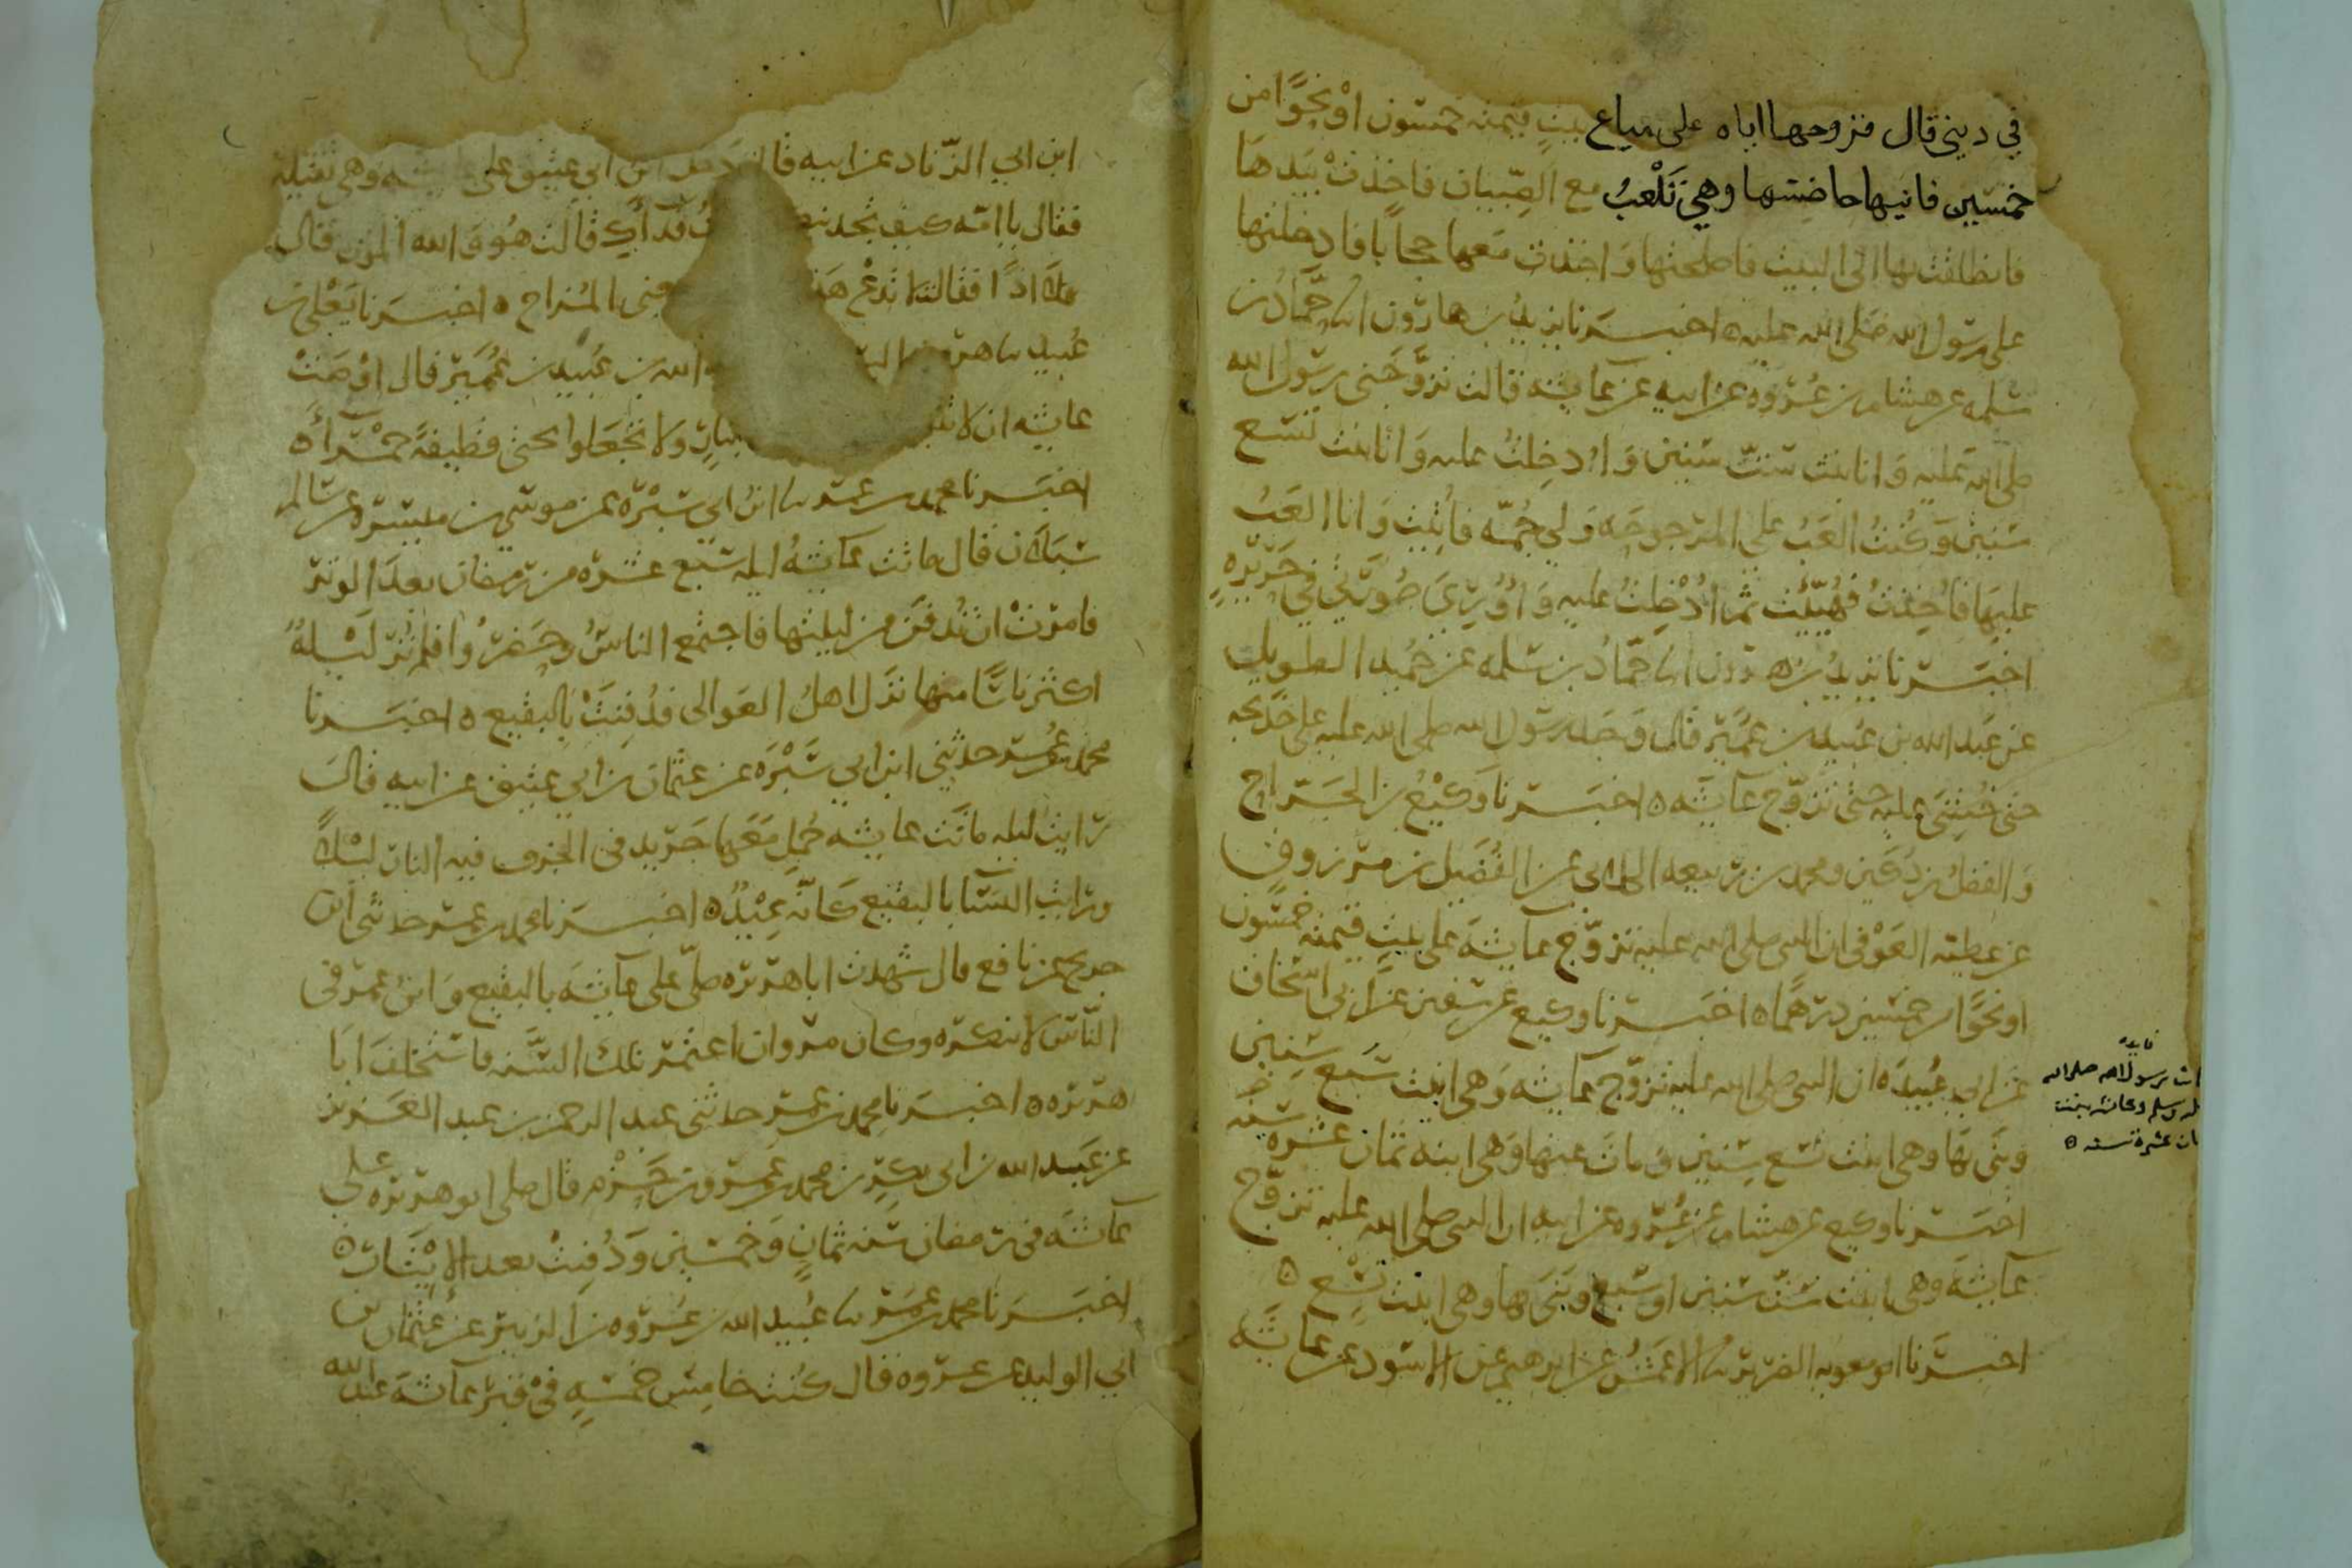 في ديني قال فزوجها اباه على متاع بيتٍ قيمته خمسون او نحوًا من
خمسين فاتيها حاضنتها وهي تَلْعَبُ مع الصِّبيان فاخذَتْ بيَدهَا
فانطلقت بها الى البيت فاصلحتها وَاخذت معها حجابًا فادخلتها
على رسُول الله صَلى الله عليه ٥ اخبَرنا يزيدُ بن هارون انا حَمَّادُ بن
سَلمه عن هشام بن عُرْوَة عن ابيه عن عايشه قالت تزوَّجَني رسُول الله
صلى الله عَليه وَانا بنت سَتّ سنين وَاُدخِلتُ عليه وَانا بنت تسع
سَنين وَكُنتُ العَبُ على المرجوحَه وَلي جُمّه فاُتيت وَانا العَبُ
عليهَا فاُخِذتُ فهُيِّئت ثم اُدْخِلتُ عليه وَاُورِيَ صُورَتي في حَريرهٍ
اخبَرنا يزيدُ بن هرون انا حَمّادُ بن سَلمه عن حُمَيد الطويل
عن عَبد الله بن عبيد بن عُمَير قال وَجد رسُول الله صلى الله عليه على خديجه
حتى خُشِيَ عليه حتى تزوّج عايشَه ٥ اخبَرنا وَكيْعُ بن الجَرّاح
وَالفضلُ بن دُكين ومحمد بن ربيعه الكلابي عن الفُضَيل بن مرزوقٍ
عن عطيه العَوْفي ان النبى صلى الله عليه تزوّج عايشَةَ على بيتٍ قيمته خمسُون
او نحوًا من خمسين درهمًا ٥ اخبَرنا وكيع عن سفين عن ابي اسحاق
عن ابي عُبيدَه ان النبى صلى الله عليه تزوّج عايشه وَهى ابنت سَبع سِنين
وَبَنى بهَا وهى ابنت تسع سِنين وَمات عنها وَهى ابنه ثمان عشره سَنه
اخبَرنا وكيع عن هشام بن عُرْوه عن ابيه ان النبى صلى الله عليه تزوّج
عايشَة وهى ابنت سَتّ سَنين او سَبع وبَنَى بها وهى ابنت تِسْع ٥
اخبَرنا ابو معويه الضرير نا الاعمَشُ عن ابرهيم عن الاسود عن عايشَه
فايده
مات رسول الله صلى الله
عليه وسلم وعائشه بنت
ثمان عشرة سنه ٥
ابن ابي الزّناد عن ابيه قال دَخل ابن ابي عتيق على وهي ثقيله
فقال يا امّه كيف تجدينك فداكِ قالت هُو وَالله الموت قال
فلا اذًا فقالت لا تدع المُزاح ٥ اخبَرنا يَعْلى بن
عُبيد نا هرون الله بن عُبيد بن عُمَير قال اوْصَتْ
عايشه ان لا بنارٍ ولا تجعَلوا تحتى قطيفةً حمْرآءَ ٥
اخبَرنا محمد بن عمر نا ابنُ ابي سَبْرة عن موسى بن ميسَرة عن سالم
سَبَلان قال ماتت عايشَهُ ليله سَبع عشره من رمضان بعدَ الوتر
فامرَتْ ان تُدفَن من ليلتها فاجتمع الناسُ وحَضرُوا فلم تُر لَيْلهٌ
اكثر ناسًا منها نزل اهلُ العَوالى فدُفِنَتْ بالبقيع ٥ اخبَرنا
محمد بن عُمر حدثني ابن ابي سَبْرَه عن عثمان بن ابي عتيق عن ابيه قالَ
رَايت ليله ماتَت عايشه حُمِل مَعَها جَريد فى الخرق فيه النار ليْلاً
ورَايت النسَا بالبقيع كانّه عِيْدٌ ٥ اخبرنا محمد بن عمر حدثنى ابن
جريج عن نافع قال شهدت ابا هريره صلّى على عايشَة بالبقيع وَابنُ عمر فى
النّاس لا ينكره وكان مروان اعتمر تلك السَّنه فاستخلفَ ابَا
هريره ٥ اخبرنا محمد بن عمر حدثنى عبد الرحمن بن عبد العَزيز
عن عَبد الله بن ابى بكرِ بن محمد بن عَمرو بن حَزْم قال صلى ابو هريره على
عايشَه فى رمضان سَنه ثمانٍ وَخمسين وَدُفنتْ بعد الايْتَار ٥
اخبَرنا محمد بن عمَر نا عُبيد الله بن عُروه بن الزبير عن عثمان بن
ابي الوليد عن عروه قال كُنت خامِسَ خمسَهٍ فى قبر عايشَة عبد الله